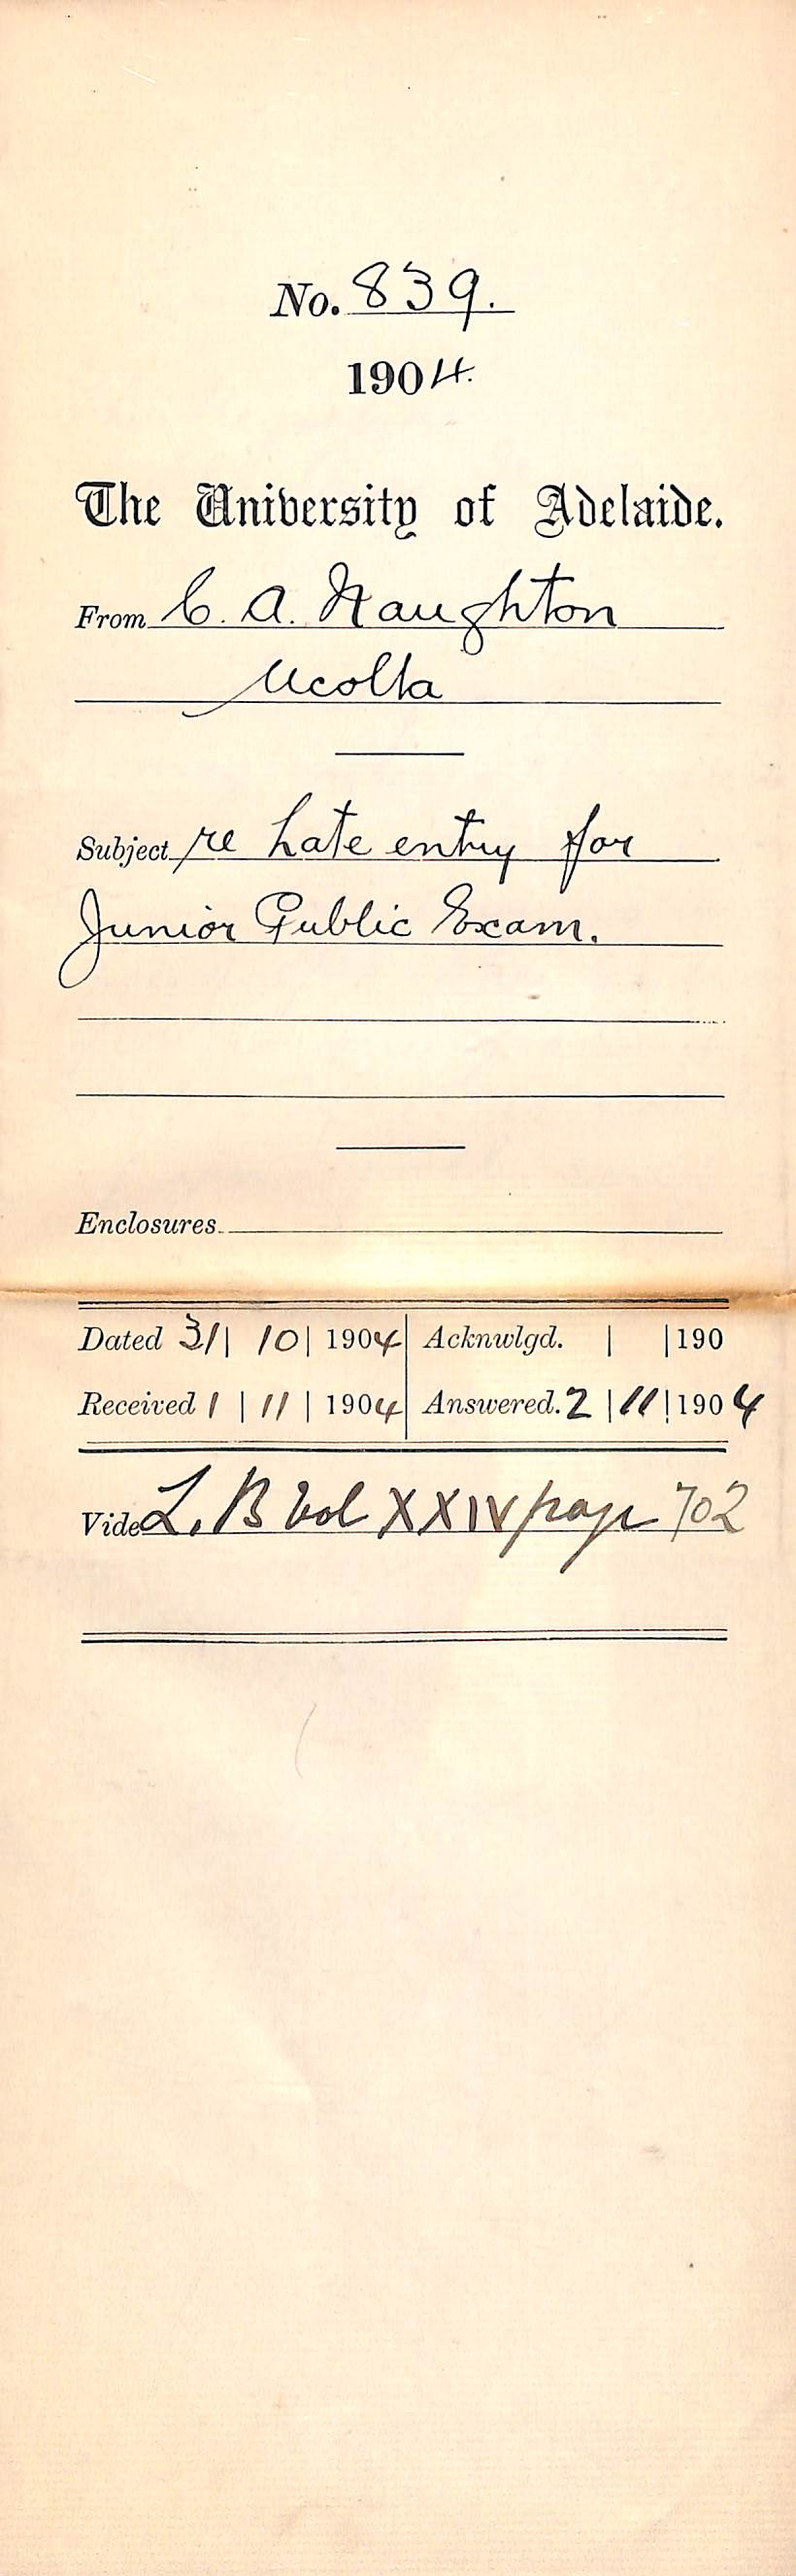 No. 839.
1904.
The University of Adelaide.
From C. A. Naughton
Ucolta
Subject re Late entry for
Junior Public Exam.
Enclosures
Dated 31 | 10 | 1904 Acknwlgd. | | 190
Received 1 | 11 | 1904 Answered. 2 | 11 | 1904
Vide L. B Vol XXIV page 702